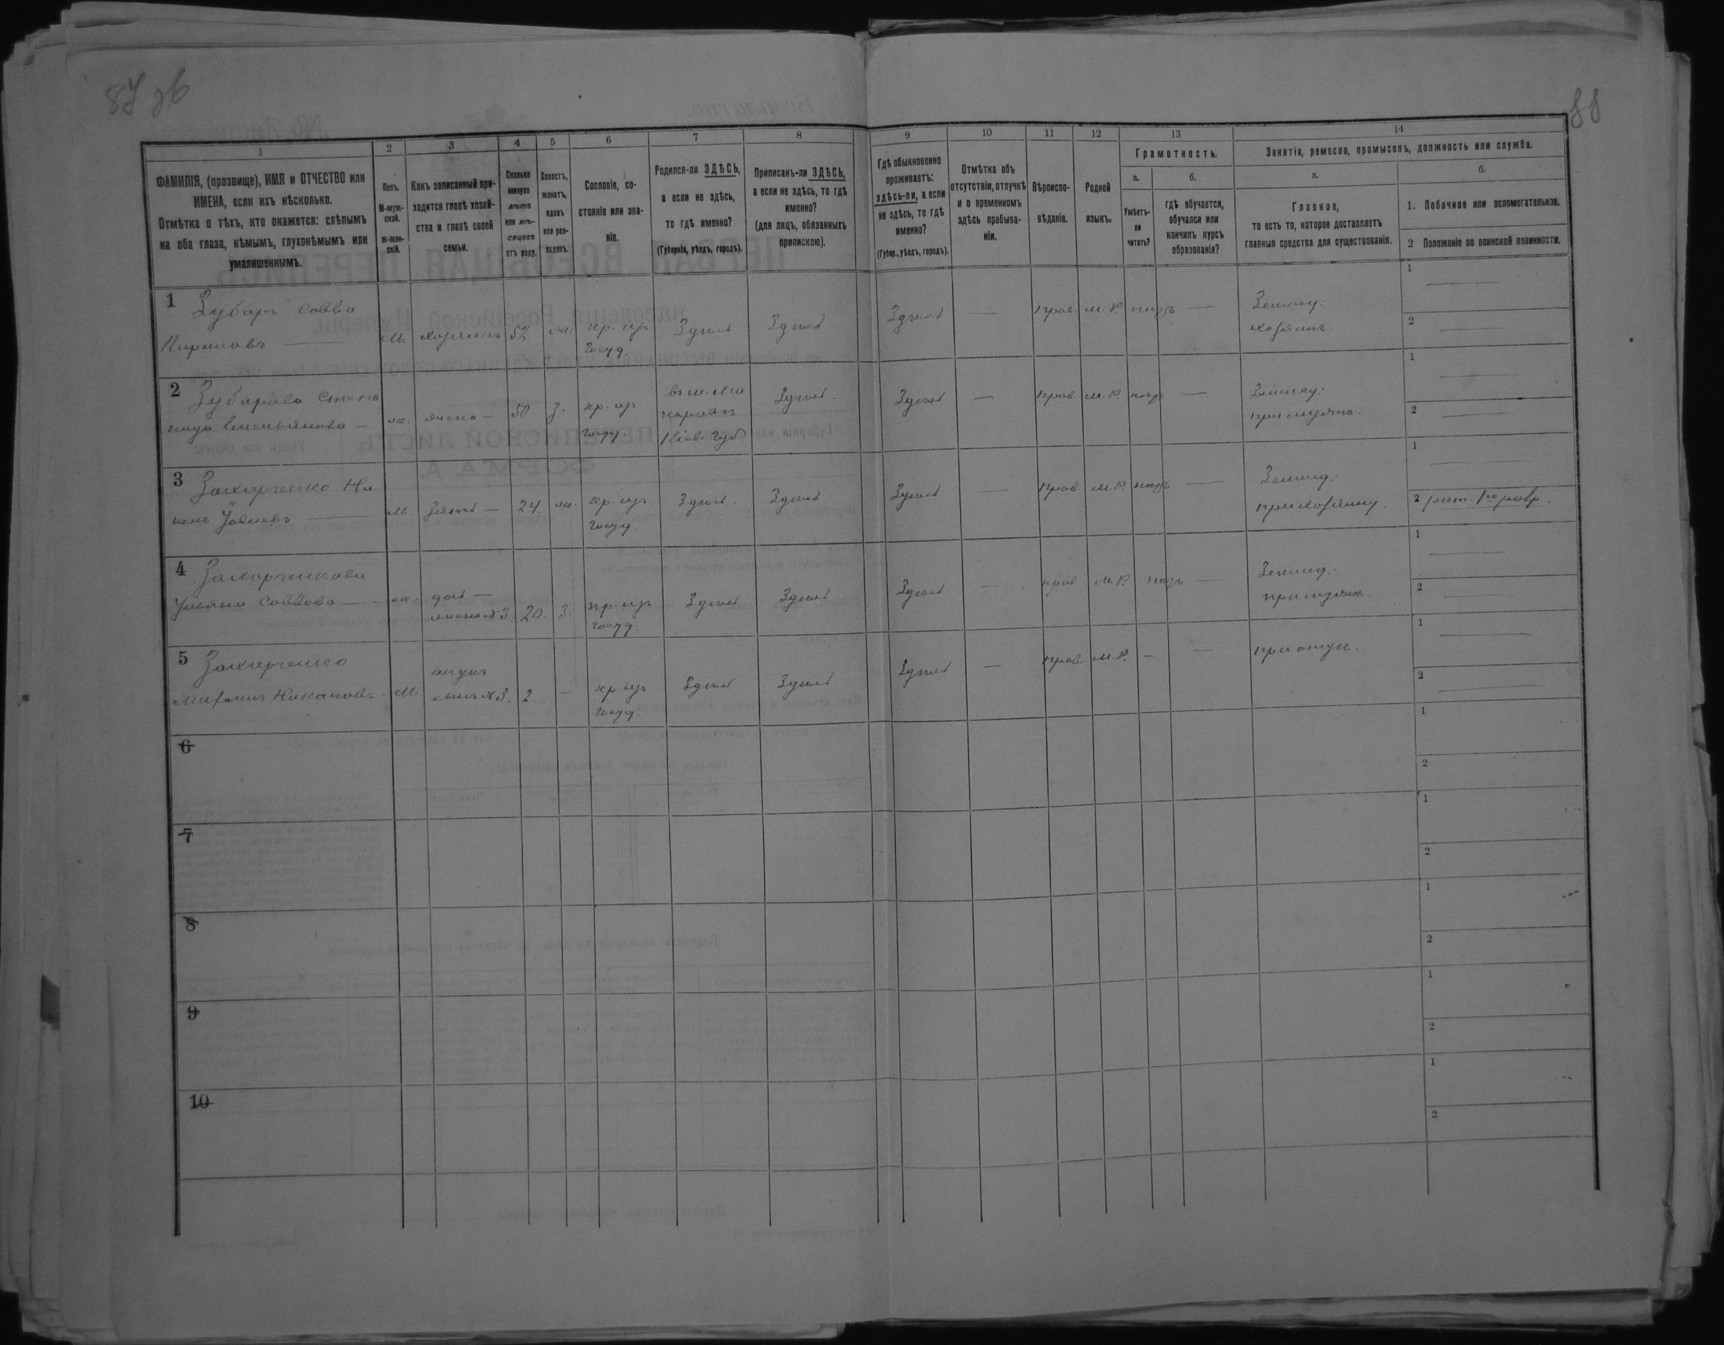 87 об
88
1
2
3
4
5
6
7
8
9
10
11
12
13
14
ФАМИЛІЯ, (прозвище), ИМЯ и ОТЧЕСТВО или
ИМЕНА, если ихъ нѣсколько.
Отмѣтка о тѣхъ, кто окажется: слѣпымъ
на оба глаза, нѣмымъ, глухонѣмымъ или
умалишеннымъ.
Полъ.
М-муж-
ской.
Ж-жен-
скій.
Какъ записанный при-
ходится главѣ хозяй-
ства и главѣ своей
семьи.
Сколько
минуло
лѣтъ
или мѣ-
сяцевъ
отъ роду.
Холостъ,
женатъ,
вдовъ
или раз-
веденъ.
Сословіе, со-
стояніе или зва-
ніе.
Родился-ли ЗДѢСЬ,
а если не здѣсь,
то гдѣ именно?
(Губернія, уѣздъ, городъ).
Приписанъ-ли ЗДѢСЬ,
а если не здѣсь, то гдѣ
именно?
(для лицъ, обязанныхъ
припискою).
Гдѣ обыкновенно
проживаетъ:
здѣсь-ли, а если
не здѣсь, то гдѣ
именно?
(Губер., уѣздъ, городъ).
Отмѣтка объ
отсутствіи, отлучкѣ
и о временномъ
здѣсь пребыва-
ніи.
Вѣроиспо-
вѣданіе.
Родной
языкъ.
Грамотность.
а.
Умѣетъ-
ли
читать?
б.
гдѣ обучается,
обучался или
кончилъ курсъ
образованія?
Занятія, ремесло, промыселъ, должность или служба.
а.
Главное,
то есть то, которое доставляетъ
главныя средства для существованія.
б.
1. Побочное или вспомогательное.
2 Положеніе по воинской повинности.
1 Зубарь Савва
Кириловъ — м. хозяинъ 52. ж. кр. из госуд Здѣсь Здѣсь Здѣсь — прав. м.р. нѣтъ — Землед. хозяинъ. 1 — 2 —
2 Зубарова —
м. жена — 50. з. кр. из госуд Кіев. губ. Здѣсь. Здѣсь — прав. м.р. нѣтъ — Землед. при мужѣ. 1 — 2 —
3 Захарченко Ни
канъ — м. зять — 24. ж. кр. из госуд. Здѣсь. Здѣсь Здѣсь — прав. м.р. нѣтъ — Землед. при хозяину. 1 — 2 рат. 1го разр.
4 Захарченкова
Ульяна Саввова — ж. доч — жена №3 20. з. кр. из госуд. Здѣсь Здѣсь Здѣсь — прав м.р. нѣтъ — Землед. при мужѣ. 1 — 2 —
5 Захарченко
Никановъ — м. внукъ сынъ №3. 2 — кр. из госуд. Здѣсь Здѣсь Здѣсь — прав. м.р. — — при отцѣ. 1 — 2 —
6 1 2
7 1 2
8 1 2
9 1 2
10 1 2